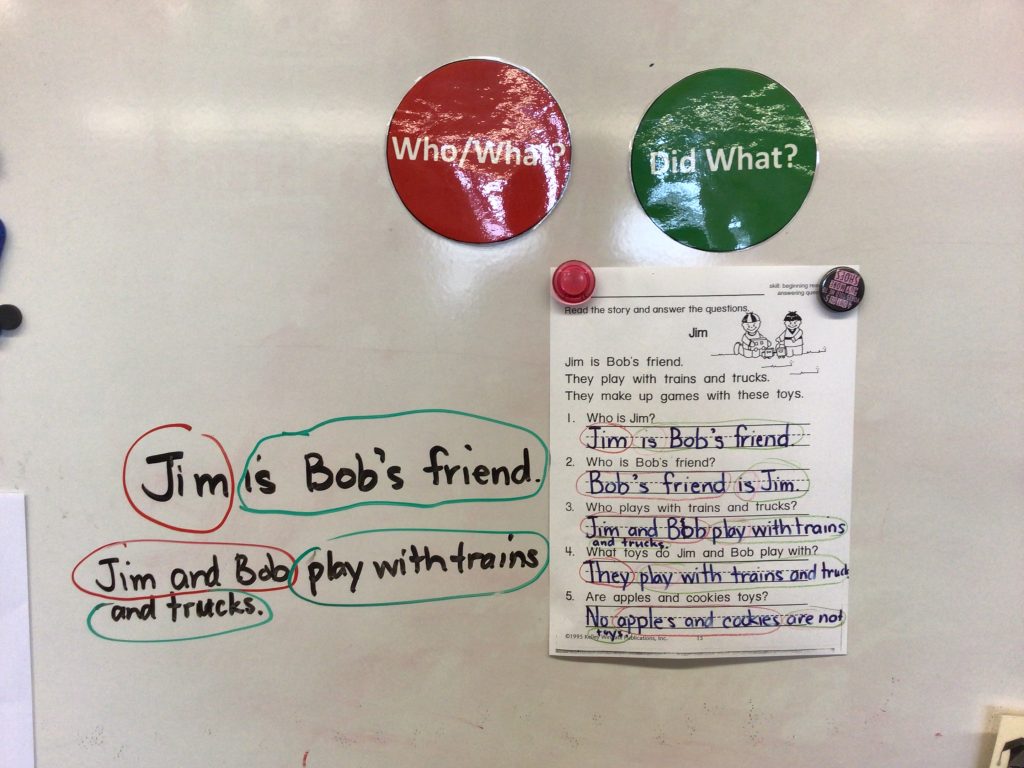 Who/What?
Did What?
skill: beginning
answering
Read the story and answer the questions.
Jim
Jim is Bob's friend.
They play with trains and trucks.
They make up games with these toys.
1. Who is Jim?
Jim is Bob's friend.
2. Who is Bob's friend?
Bob's friend is Jim.
3. Who plays with trains and trucks?
Jim and Bob play with trains
and trucks.
4. What toys do Jim and Bob play with?
They play with trains and truck
5. Are apples and cookies toys?
No apples and cookies are not
toys.
©1995 Kelley Publications, Inc. 15
Jim is Bob's friend.
Jim and Bob play with trains
and trucks.